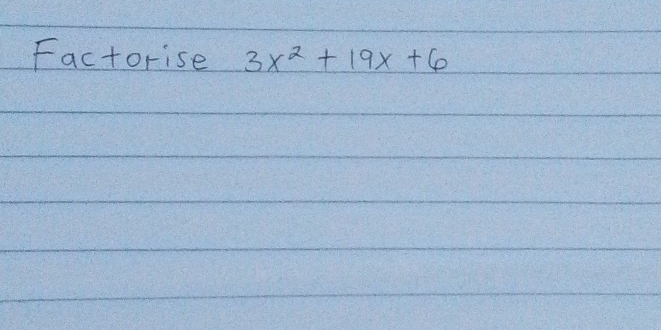 Factorise 3x² + 19x + 6